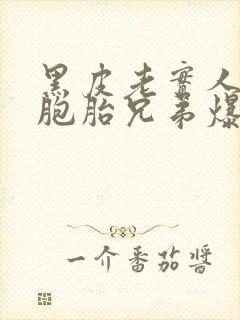 黑皮老實人
胞胎兄弟爆
一介番茄醬